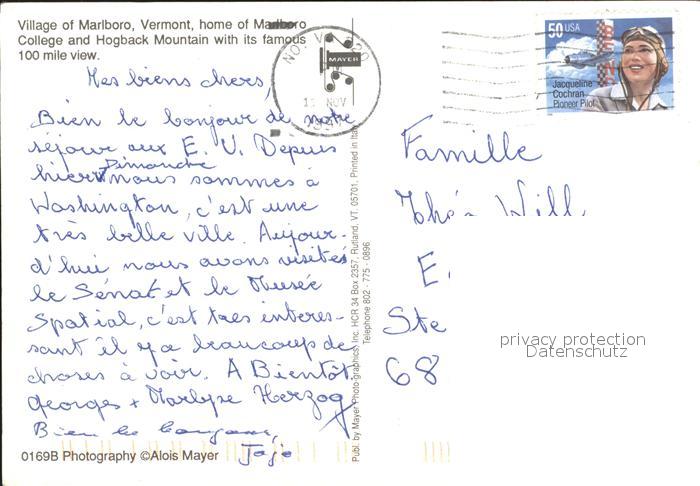 Village of Marlboro, Vermont, home of Marlboro
College and Hogback Mountain with its famous
100 mile view.
Mes biens chers,
Bien le bonjour de notre
séjour aux E. U. Depuis
hier Dimanche nous sommes à
Washington, c'est une
très belle ville. Aujour-
d'hui nous avons visités
le Sénat et le Musée
Spatial, c'est très interes-
sant il y a beaucoup de
choses à voir. A Bientôt.
Georges + Marlyse Herzog
Bien le bonjour,
Jojo
0169B Photography ©Alois Mayer
MAYER
NOV
Publ. by Mayer Photo-graphics, Inc. HCR 34 Box 2357, Rutland, VT. 05701, Printed in Italy
Telephone 802 - 775 - 0896
50 USA
Jacqueline
Cochran
Pioneer Pilot
Famille
Will
E.
Ste
68
privacy protection
Datenschutz